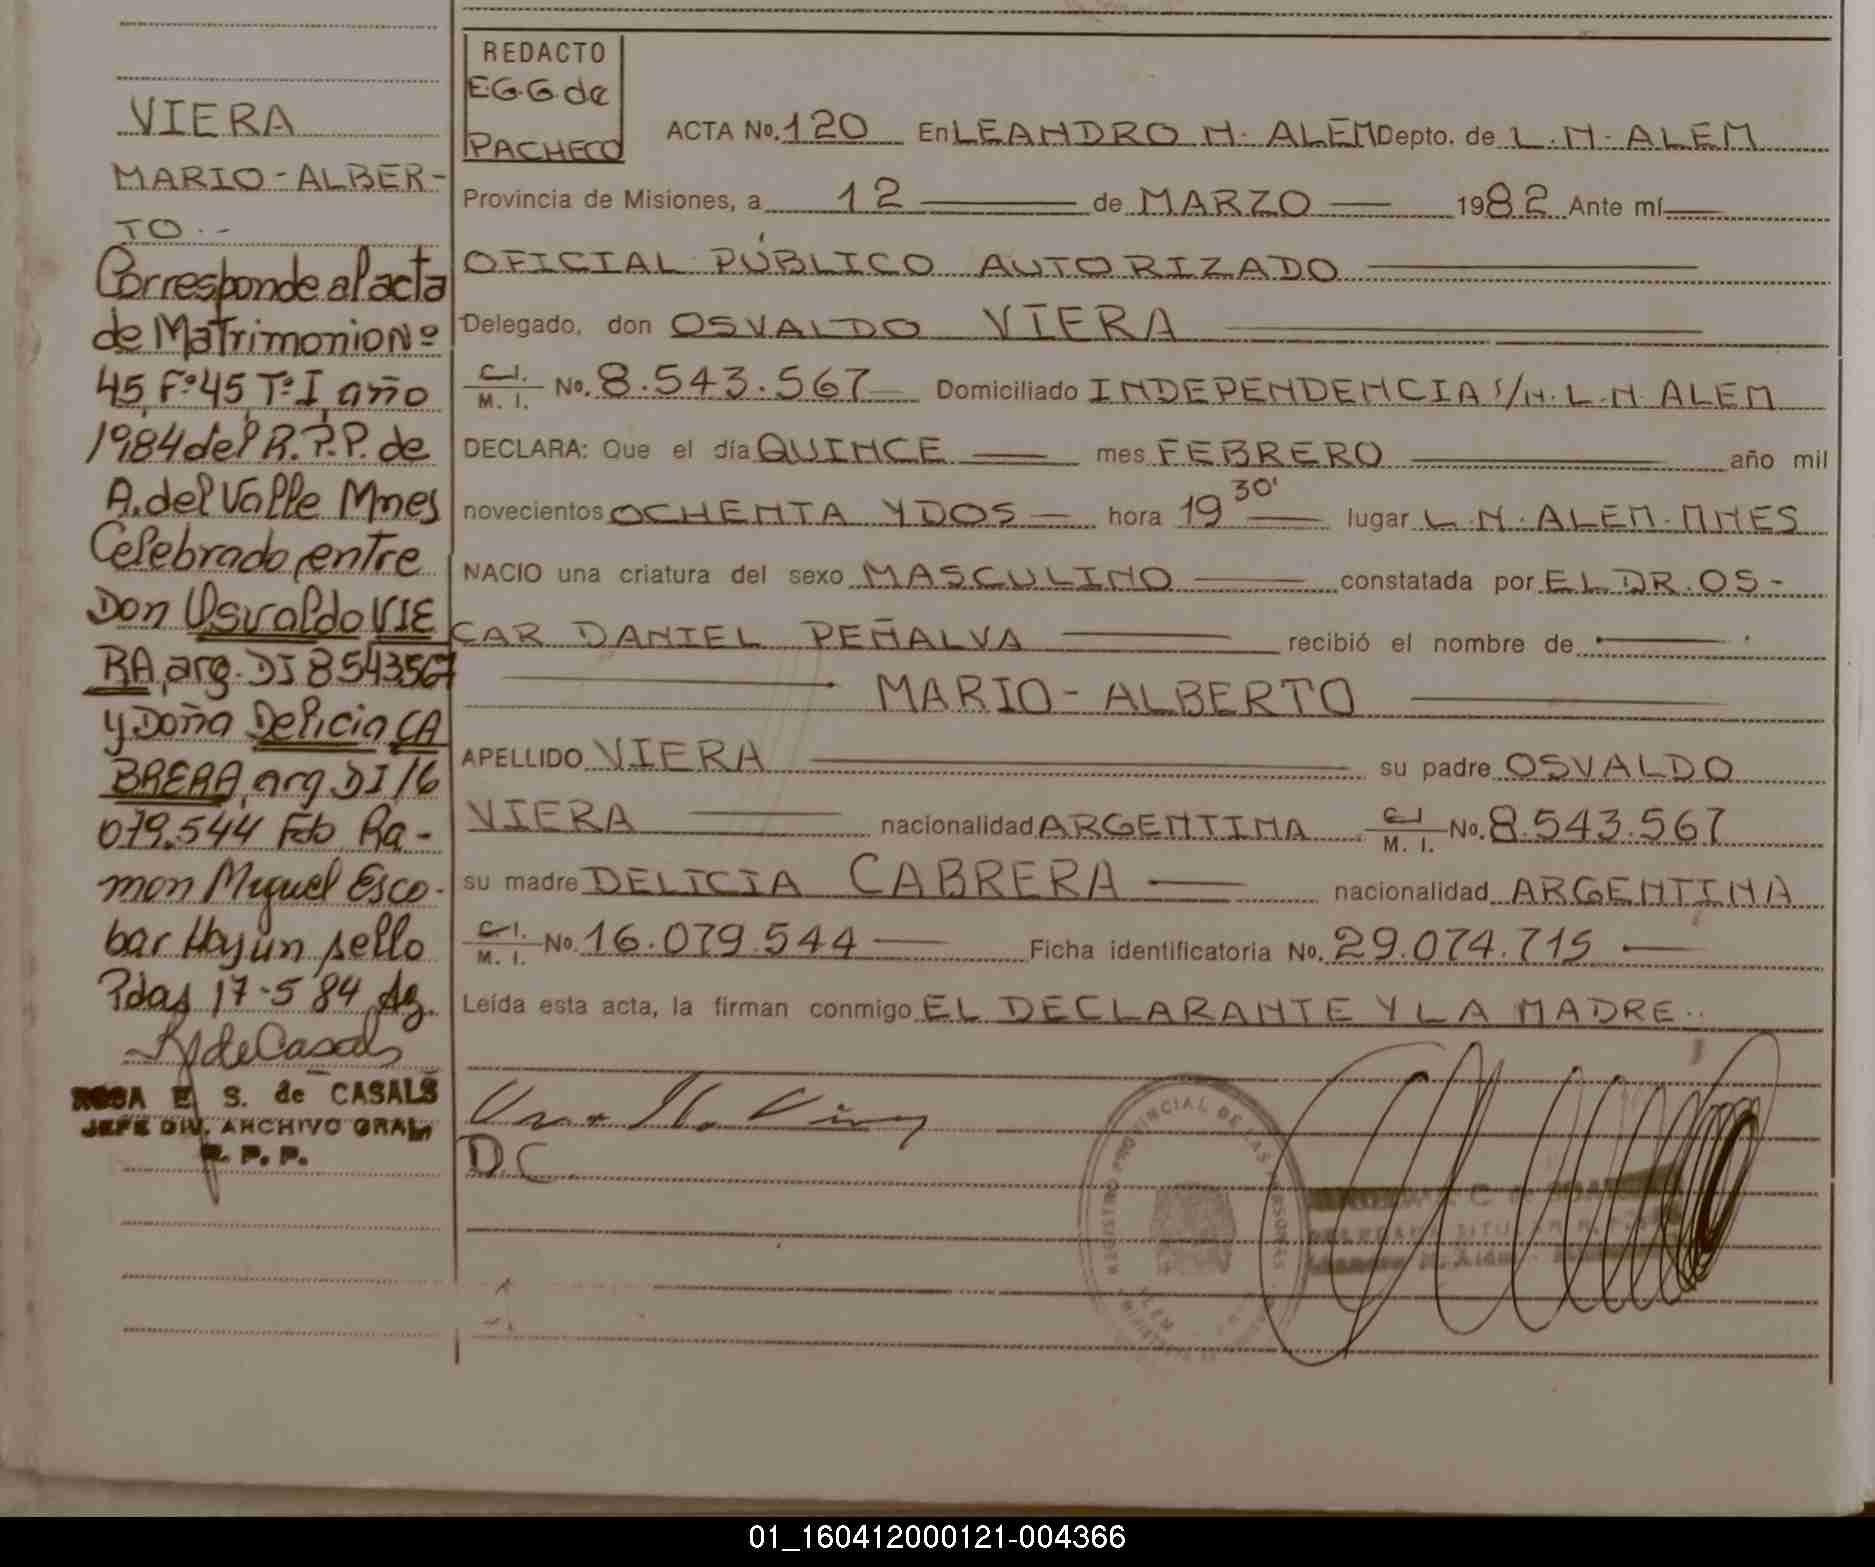 VIERA
MARIO-ALBER-
TO.-
Corresponde al acta
de Matrimonio Nº
45, Fº45, TºI, año
1984 del R.P.P. de
A. del Valle Mnes
Celebrado entre
Don Osvaldo VIE
RA, arg. DI 8543567
y Doña Delicia CA
BRERA, arg. DI 16
079.544 Fdo Ra-
mon Miguel Esco-
bar Hay un sello
Pdas 17-5 84
R de Casals
ROSA E. S. de CASALS
JEFE DIV. ARCHIVO GRAL
R. P. P.
REDACTO
E.G.G. de
PACHECO
ACTA No. 120 En LEANDRO N. ALEM Depto. de L. N. ALEM
Provincia de Misiones, a 12 de MARZO 1982 Ante mí
OFICIAL PÚBLICO AUTORIZADO
Delegado, don OSVALDO VIERA
C.I. M. I. No. 8.543.567 Domiciliado INDEPENDENCIA S/N. L. N. ALEM
DECLARA: Que el día QUINCE mes FEBRERO año mil
novecientos OCHENTA Y DOS hora 19 30' lugar L. N. ALEM. MNES
NACIO una criatura del sexo MASCULINO constatada por EL DR. OS-
CAR DANIEL PEÑALVA recibió el nombre de
MARIO-ALBERTO
APELLIDO VIERA su padre OSVALDO
VIERA nacionalidad ARGENTINA C.I. M. I. No. 8.543.567
su madre DELICIA CABRERA nacionalidad ARGENTINA
C.I. M. I. No. 16.079.544 Ficha identificatoria No. 29.074.715
Leída esta acta, la firman conmigo EL DECLARANTE Y LA MADRE..
D.C.
REGISTRO PROVINCIAL DE LAS PERSONAS
01_160412000121-004366